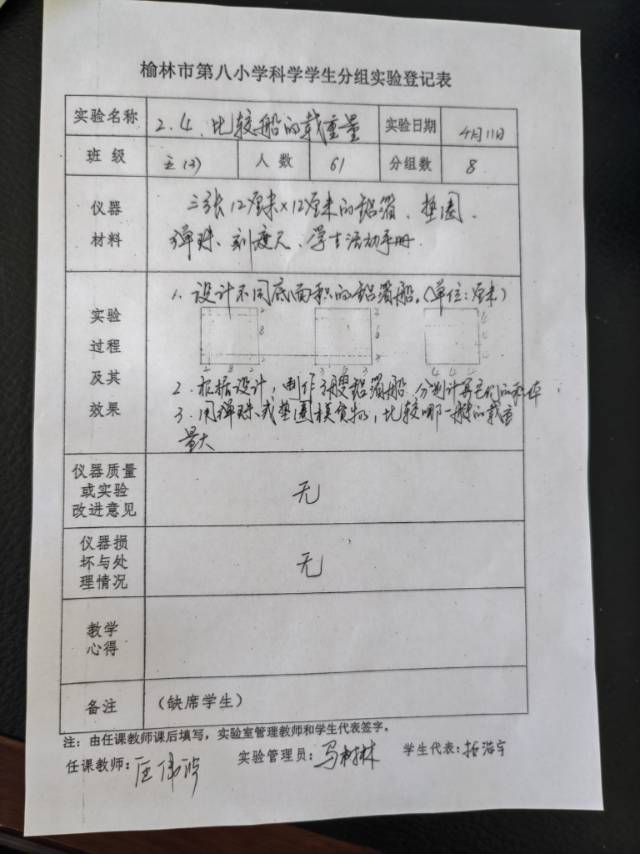 榆林市第八小学科学学生分组实验登记表
实验名称 2.4、比较船的载重量 实验日期 4月11日
班级 五(2) 人数 61 分组数 8
仪器材料 三张12厘米×12厘米的铝箔、垫圈、
弹珠、刻度尺、学生活动手册.
实验过程及其效果 1、设计不同底面积的铝箔船。(单位:厘米)
2 8 2 3 6 3 4 4 4
2、根据设计,制作3艘铝箔船,分别计算它们的
3、用弹珠或垫圈模货物,比较哪一艘的载重
量大
仪器质量或实验改进意见 无
仪器损坏与处理情况 无
教学心得
备注 (缺席学生)
注:由任课教师课后填写,实验室管理教师和学生代表签字。
任课教师: 实验管理员:马树林 学生代表: